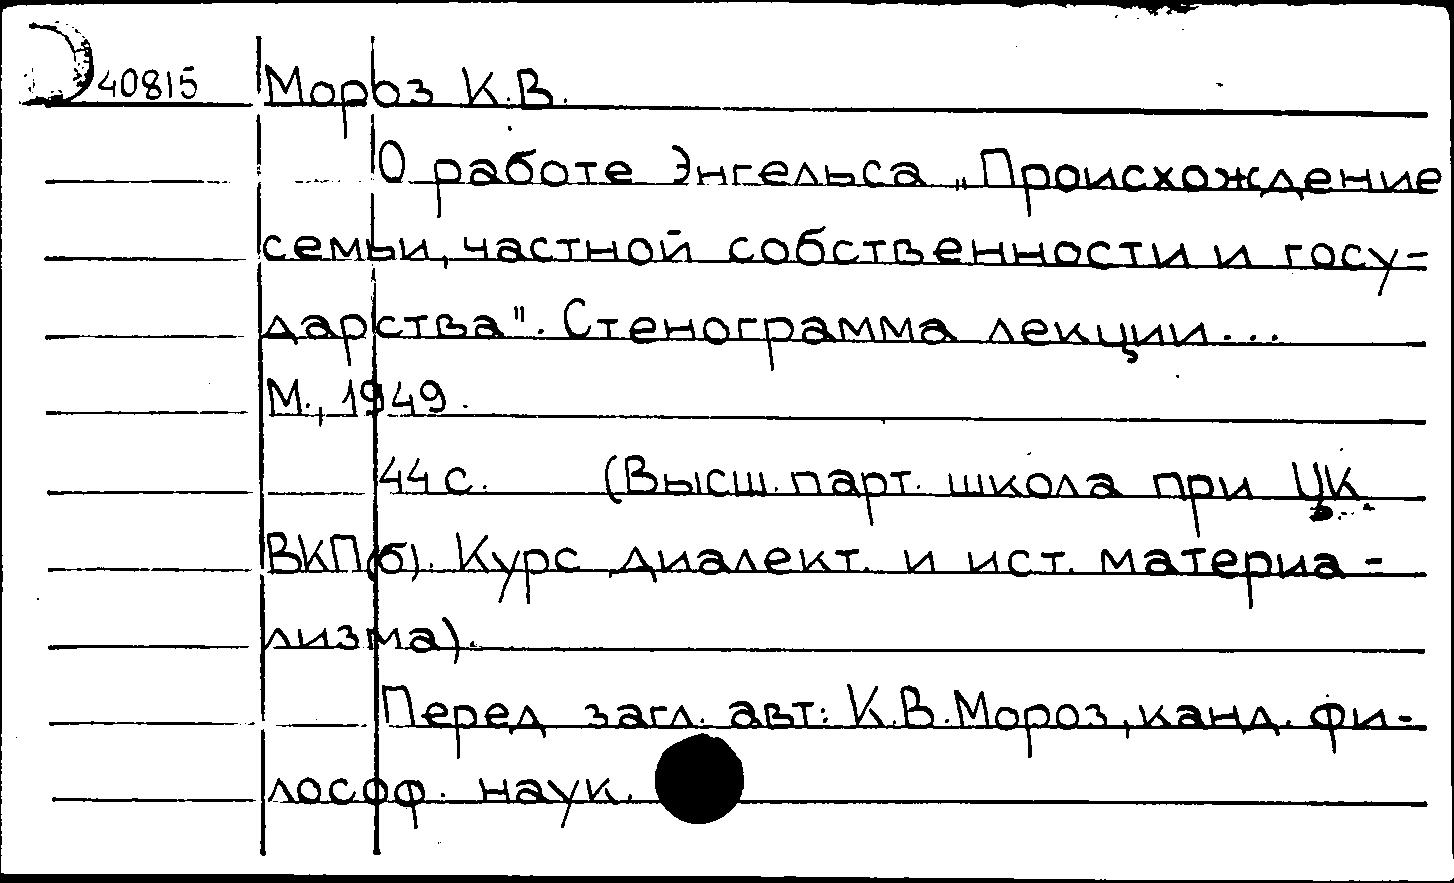 40815 Мороз К.В.
О работе Энгельса „Происхождение
семьи, частной собственности и госу=
дарства". Стенограмма лекции...
М., 1949.
44 с. (Высш. парт. школа при ЦК
ВКП(б). Курс диалект. и ист. материа=
лизма).
Перед загл. авт: К.В.Мороз, канд. фи-
лософ. наук.